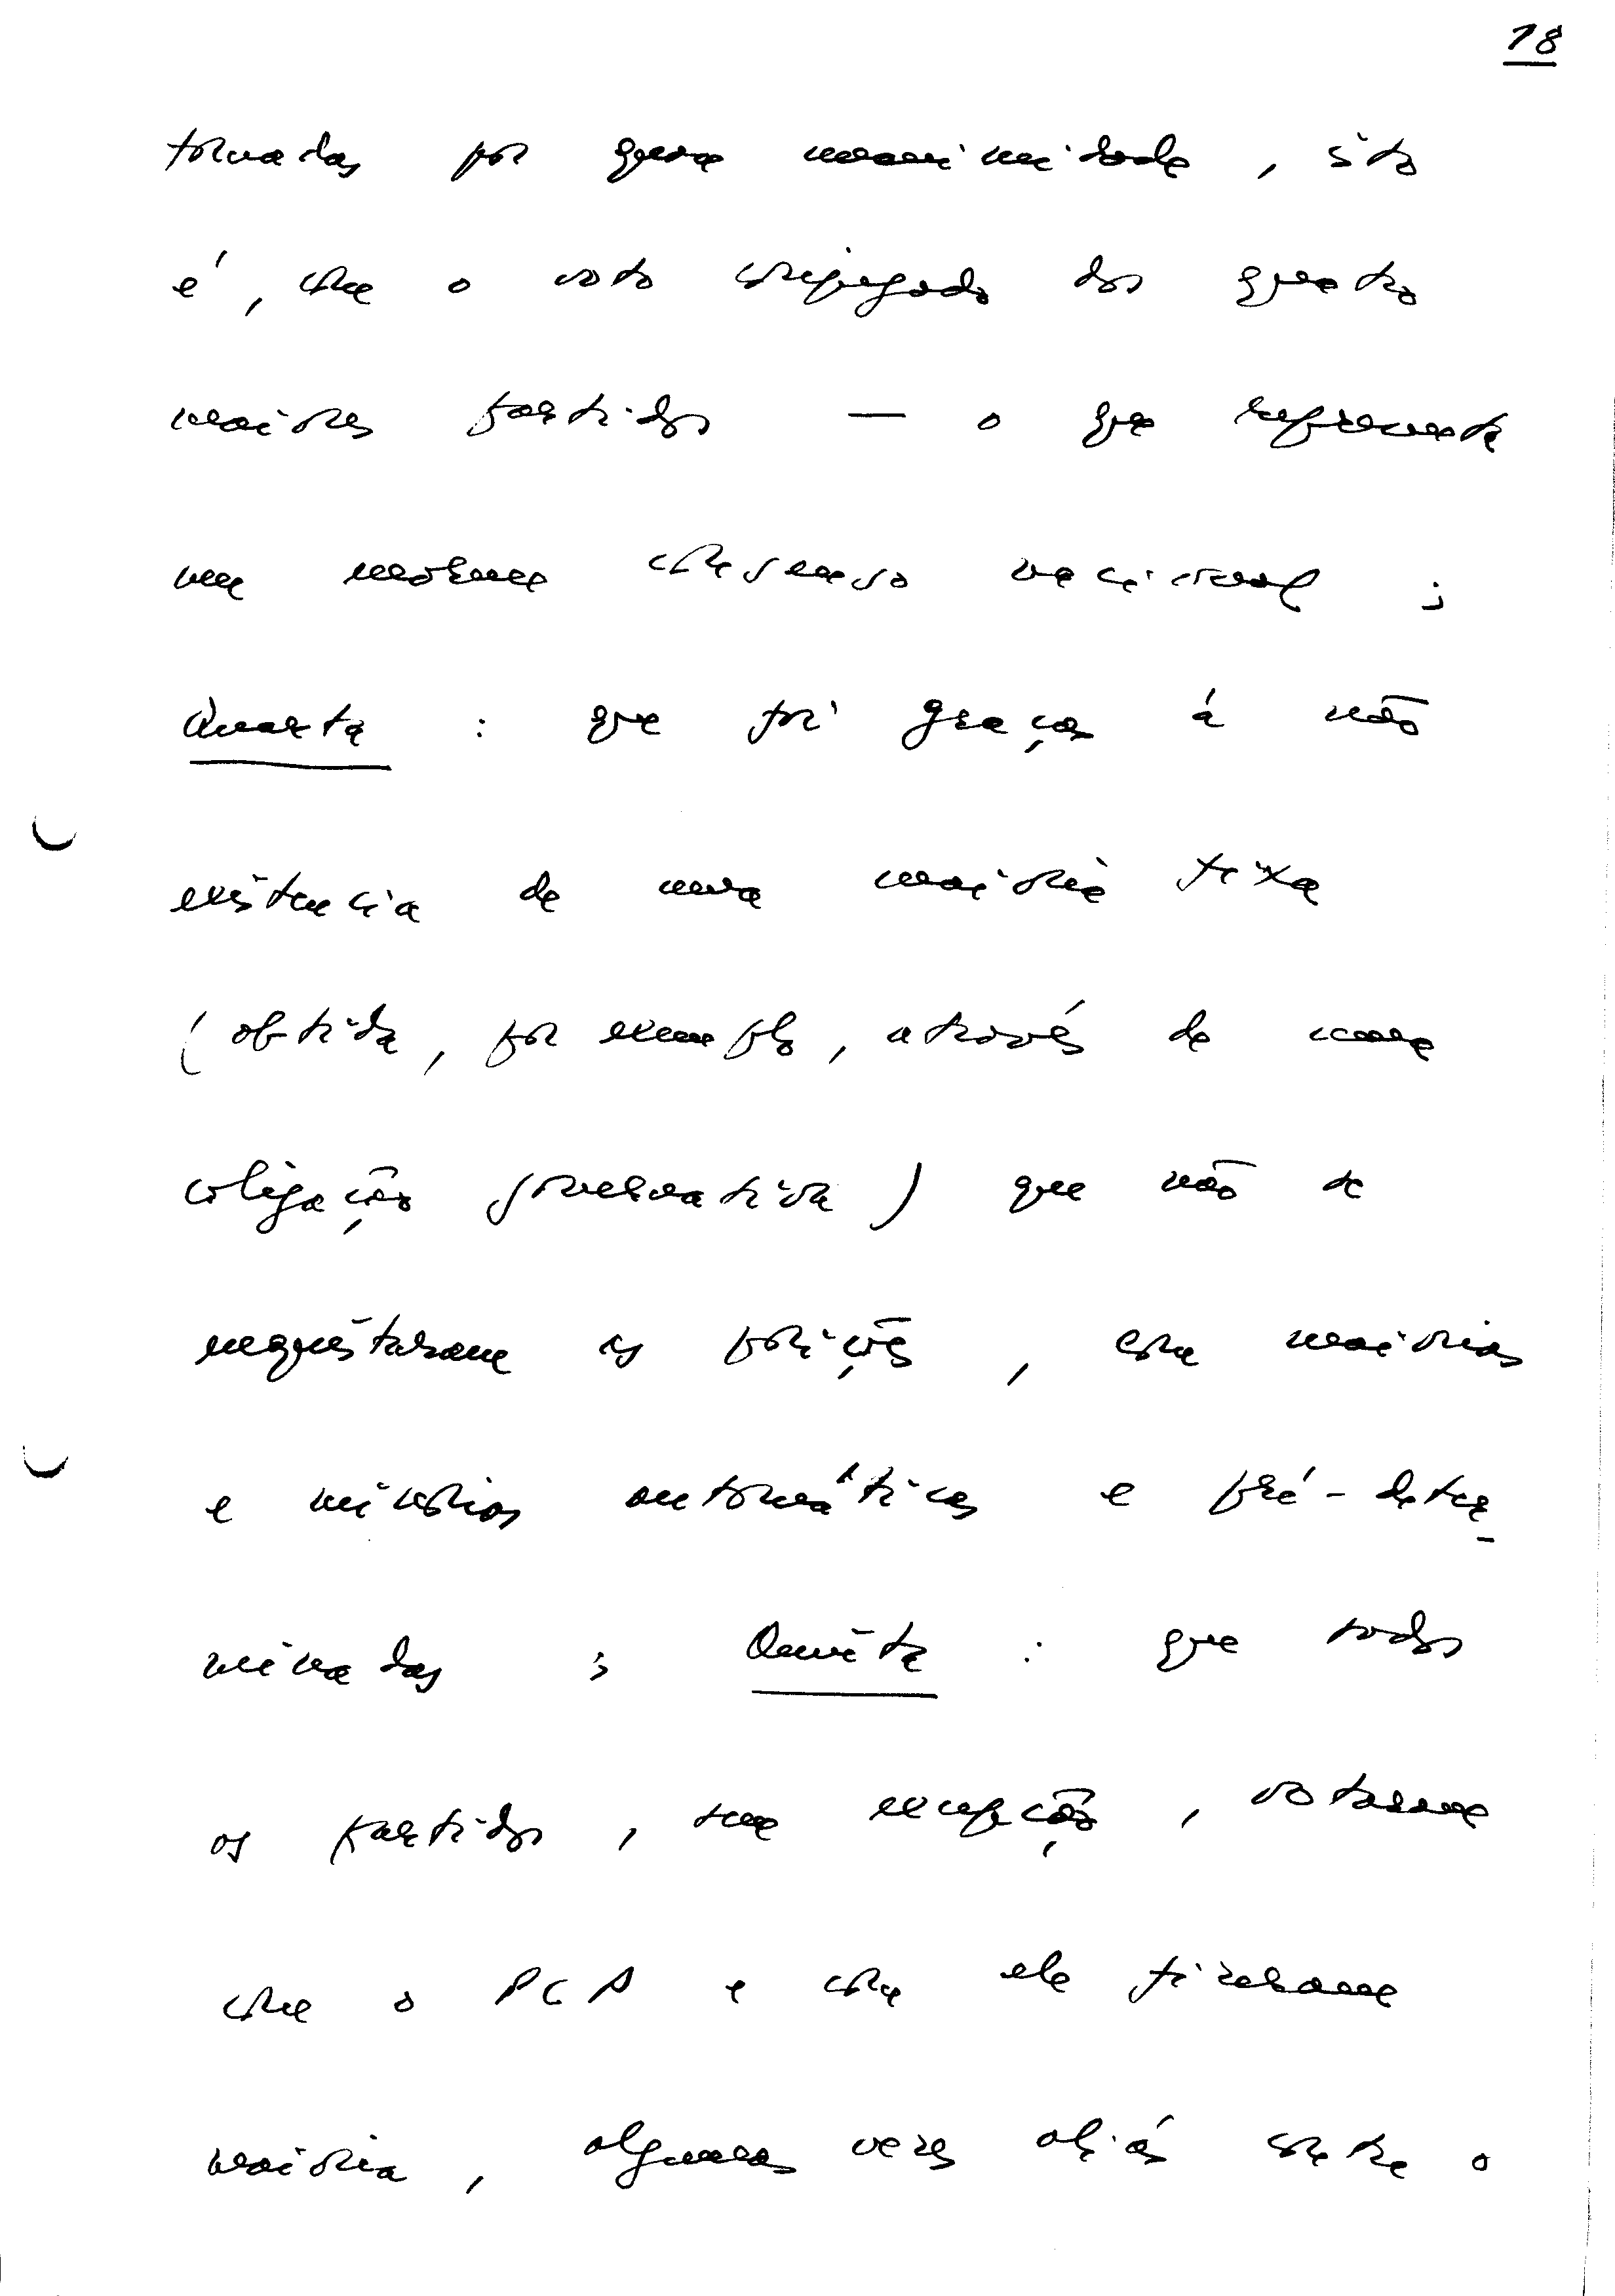 18
tomadas por quase unanimidade, isto
é, com o voto conjugado dos quatro
maiores partidos — o que representa
um enorme consenso nacional;
Quarta: que foi graças à não
existência de uma maioria fixa
(obtida, por exemplo, através de uma
coligação governativa) que não se
enquistaram as posições, com maiorias
e minorias automáticas e pré-deter-
minadas; Quinta: que todos
os partidos, sem excepção, votaram
com o PCP e com ele fizeram
maioria, algumas vezes aliás contra o